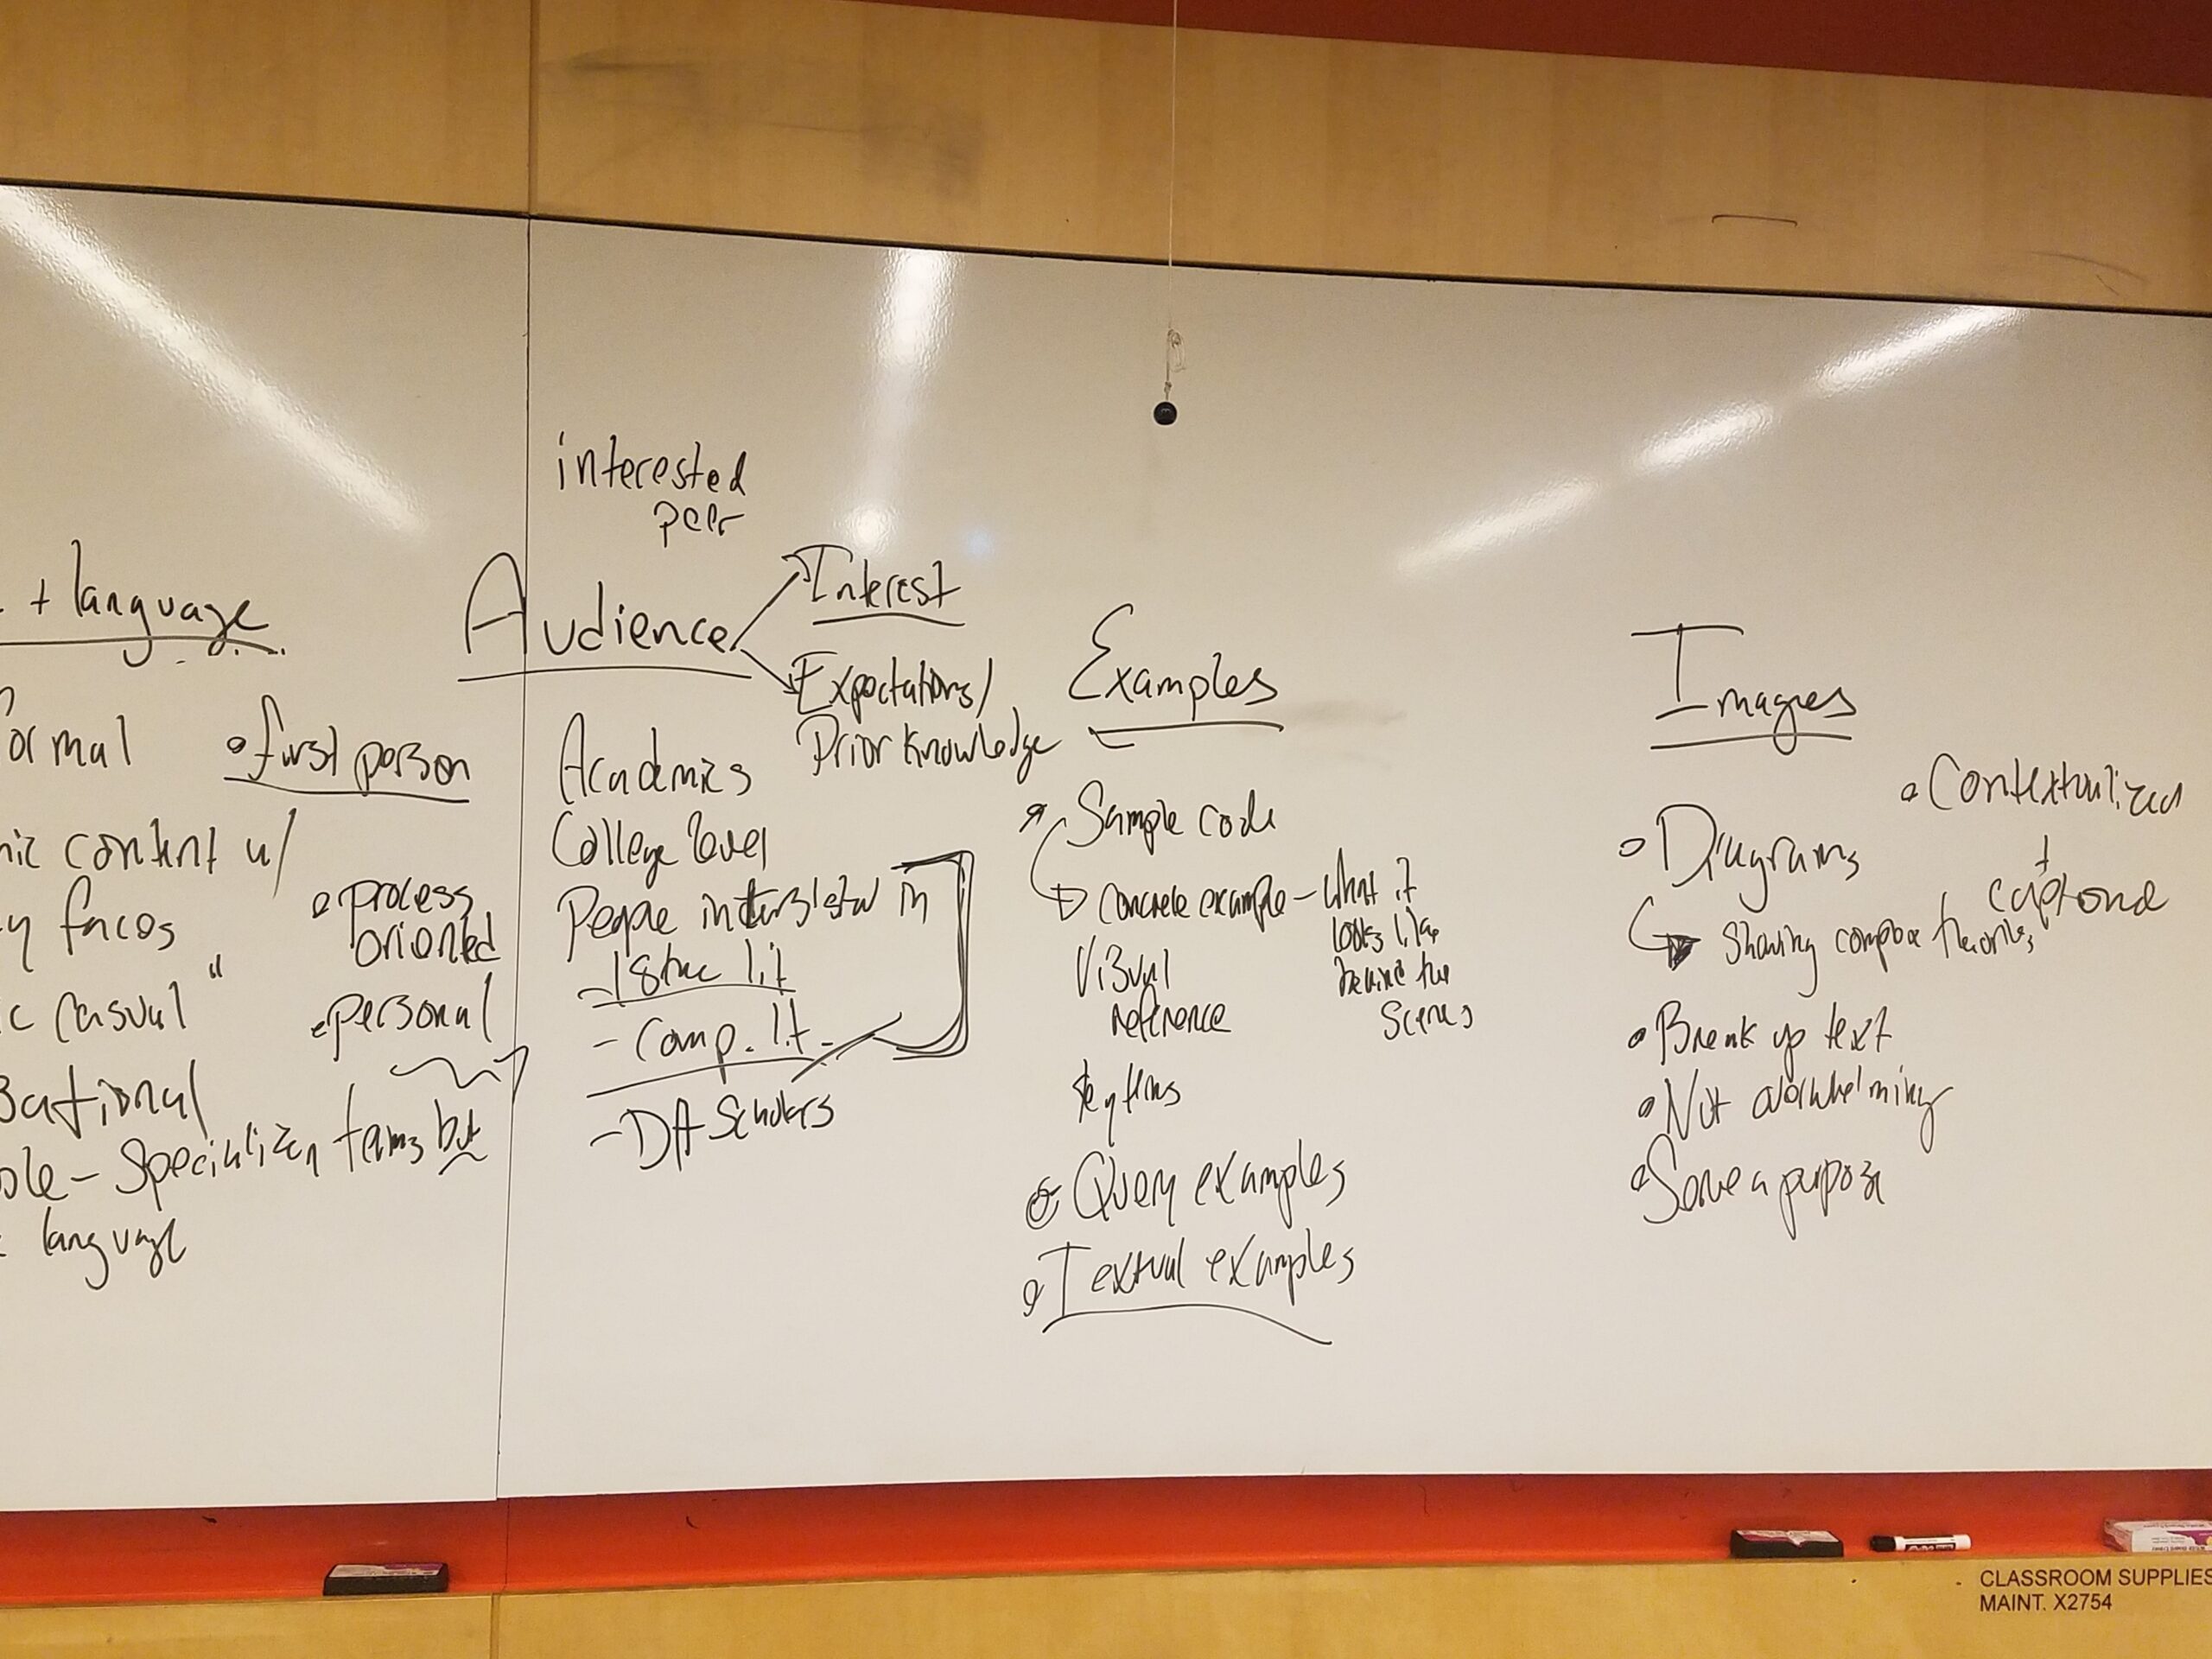 + language
ormal
• first person
nic content w/
y faces
• process
oriented
c casual"
• personal
sational
ole - Specialized terms but
language
interested
peer
Audience
Interest
Expectations/
Prior Knowledge
Academics
College level
People interested in
- 18th c lit
- Comp. lit.
- DH Scholars
Examples
Sample code
concrete example - what it
looks like
behind the
scenes
Visual
reference
Key terms
Query examples
• Textual examples
Images
• Contextualized
+
captioned
• Diagrams
showing complex theories
• Break up text
• Not overwhelming
• Serve a purpose
CLASSROOM SUPPLIES
MAINT. X2754